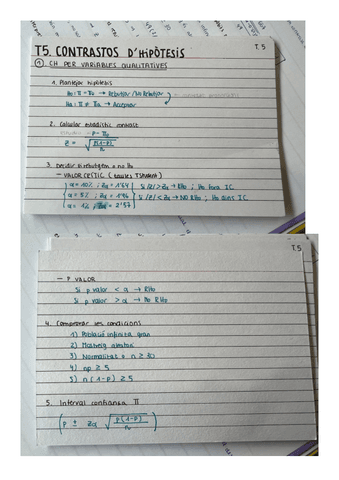 T.5
T5. CONTRASTOS D'HIPÒTESIS
① CH PER VARIABLES QUALITATIVES
1. Plantejar hipòtesis
Ho: π = πo → Rebutjar / No Rebutjar
Ha: π ≠ πo → Acceptar
2. Calcular estadístic contrast
z = p - πo / √(p(1-p)/n)
3. Decidir si rebutgem o no Ho
- VALOR CRÍTIC (taules TStudent)
α = 10% ; Zα = 1'64 Si |z| > Zα → RHo ; Ho fora IC
α = 5% ; Zα = 1'96 Si |z| < Zα → NO RHo ; Ho dins IC
α = 1% Zα = 2'57
T.5
- P VALOR
Si p valor < α → RHo
Si p valor > α → No RHo
4. Comprovar les condicions
1) Població infinita gran
2) Mostreig aleatori
3) Normalitat o n ≥ 30
4) np ≥ 5
5) n(1-p) ≥ 5
5. Interval confiança π
(p ± Zα √(p(1-p)/n))